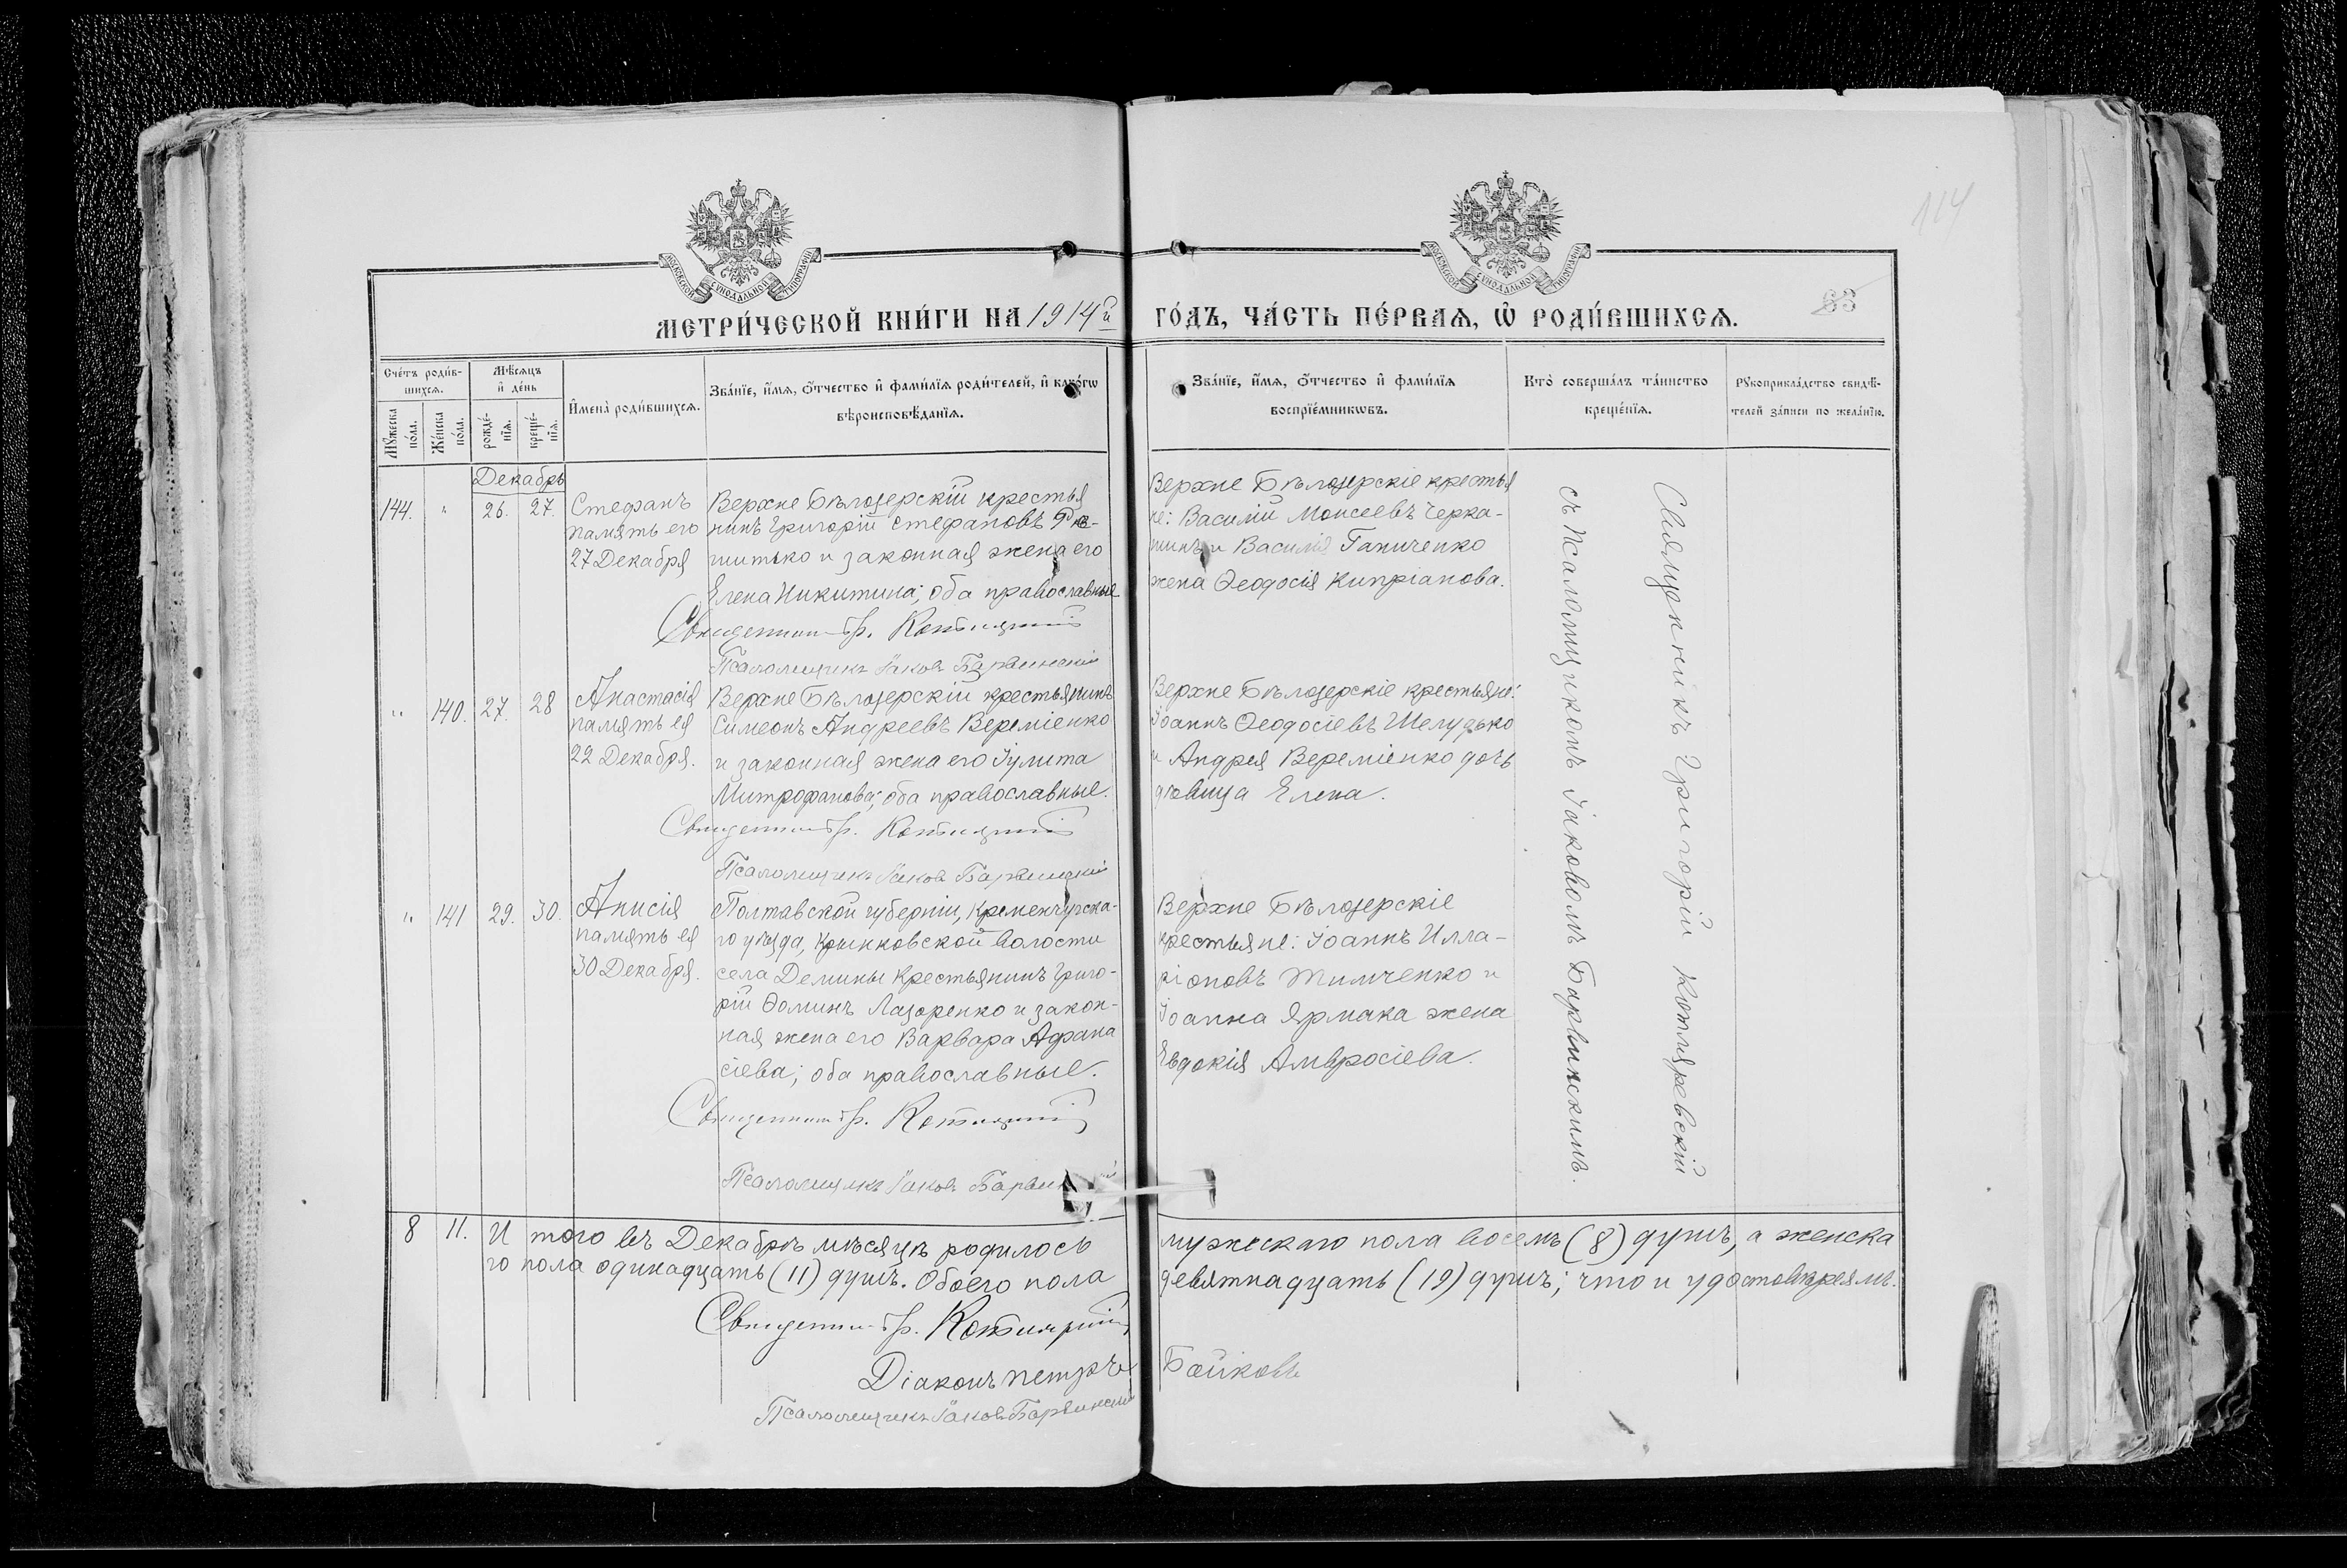 114
МЕТРИ́ЧЕСКОЙ КНИ́ГИ НА 1914й ГО́ДЪ, ЧА́СТЬ ПЕ́РВАѦ, Ѡ РОДИ́ВШИХСѦ.
63
Сче́тъ роди́в-
шихсѧ.
Мѣ́сѧцъ
и҆ де́нь
Мꙋ́жеска
по́ла.
Же́нска
по́ла.
рожде́-
нїѧ.
креще́-
нїѧ.
И҆мена̀ роди́вшихсѧ.
Зва́нїе, и҆́мѧ, ѻ҆́тчество и҆ фами́лїѧ роди́телей, и҆ како́гѡ
вѣроисповѣ́данїѧ.
Зва́нїе, и҆́мѧ, ѻ҆́тчество и҆ фами́лїѧ
воспрїе́мникѡвъ.
Кто̀ соверша́лъ та́инство
креще́нїѧ.
Рꙋкоприкла́дство свидѣ́-
телей за́писи по жела́нїю.
Декабрь
144. " 26. 27.
Стефанъ
память его
27 Декабря
Верхне Бѣлозерскій крестья
нинъ Григорій Стефановъ
шитько и законная жена его
Елена Никитина; оба православные
Священникъ Гр. Котляревскій
Псаломщикъ Іаковъ Барвинскій
Верхне Бѣлозерскіе крестья
не: Василій Моисеевъ Черка-
шинъ и Василія Ганиченко
жена Ѳеодосія Кипріанова.
" 140. 27. 28
Анастасія
память ея
22 Декабря.
Верхне Бѣлозерскій крестьянинъ
Симеонъ Андреевъ Вереміенко
и законная жена его Іулита
Митрофанова; оба православные.
Священникъ Гр. Котляревскій
Псаломщикъ Іаковъ Барвинскій
Верхне Бѣлозерскіе крестьяне:
Іоаннъ Ѳеодосіевъ Шелудько
и Андрея Вереміенко дочь
дѣвица Елена.
" 141 29. 30.
Анисія
память ея
30 Декабря.
Полтавской губерніи, Кременчугска-
го уѣзда, волости
села Демины крестьянинъ Григо-
рій Ѳоминъ Лазоренко и закон-
ная жена его Варвара Афана
сіева; оба православные.
Священникъ Гр. Котляревскій
Псаломщикъ Іаковъ Барвинскій
Верхне Бѣлозерскіе
крестьяне: Іоаннъ Илла-
ріоновъ Тимченко и
Іоанна Ярмака жена
Евдокія Амвросіева.
Священникъ Григорій Котляревскій
съ Псаломщикомъ Іаковомъ Барвинскимъ.
8 11. И того въ Декабрѣ мѣсяцѣ родилось мужескаго пола восемь (8) душъ, а женска
го пола одинадцать (11) душъ. Обоего пола девятнадцать (19) душъ; что и удостовѣряемъ.
Священникъ Гр. Котляревскій
Діаконъ Петръ Бойковъ
Псаломщикъ Іаковъ Барвинскій